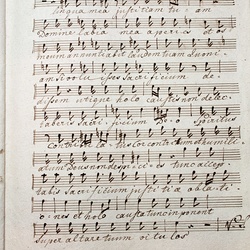 lingua mea justitiam tu: am
Domine labia mea aperies et os
meum annuntiabit laudem tuam Quoni:
am si voluisses Sacrificium de:
dissem utique holocaustis non delec:
taberis Sacrificium Deo Spiritus
contribulatus cor contritum et humili:
atum Deus non despicies tunc accep
tabis Sacrificium justitiæ oblati
o: nes et holocausta tunc imponent
super altare tuum vitulos